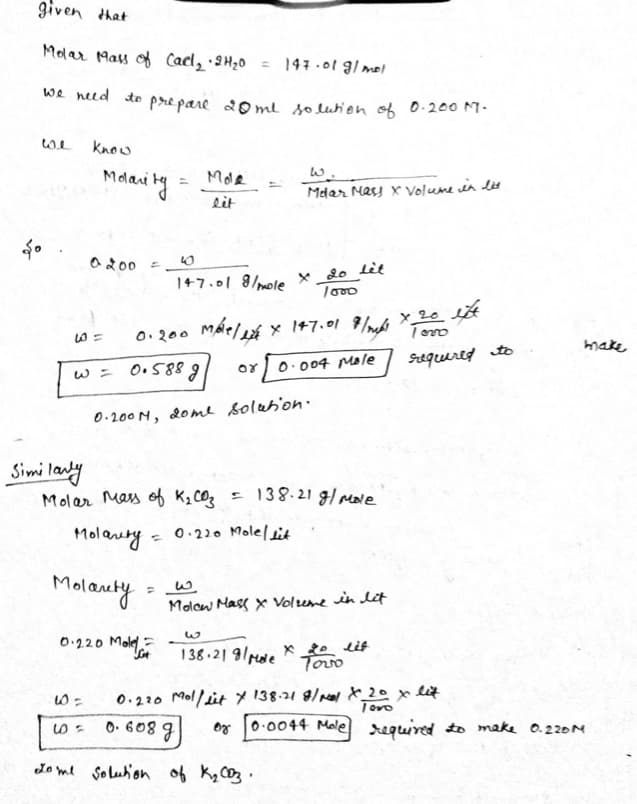 given that
Molar Mass of CaCl2·2H2O = 147.01 g/mol
we need to prepare 20ml solution of 0.200 M.
we know
Molarity = Mole / lit = w / Molar Mass x Volume in lit
So. 0.200 = w / 147.01 g/mole x 20/1000 lit
w = 0.200 Mole/lit x 147.01 g/mole x 20/1000 lit
w = 0.588 g or 0.004 Mole required to make
0.200M, 20ml solution.
Similarly
Molar Mass of K2CO3 = 138.21 g/Mole
Molarity = 0.220 Mole/lit
Molarity = w / Molar Mass x Volume in lit
0.220 Mole/lit = w / 138.21 g/Mole x 20/1000 lit
w = 0.220 Mol/lit x 138.21 g/Mol x 20/1000 x lit
w = 0.608 g or 0.0044 Mole required to make 0.220M
20ml solution of K2CO3.